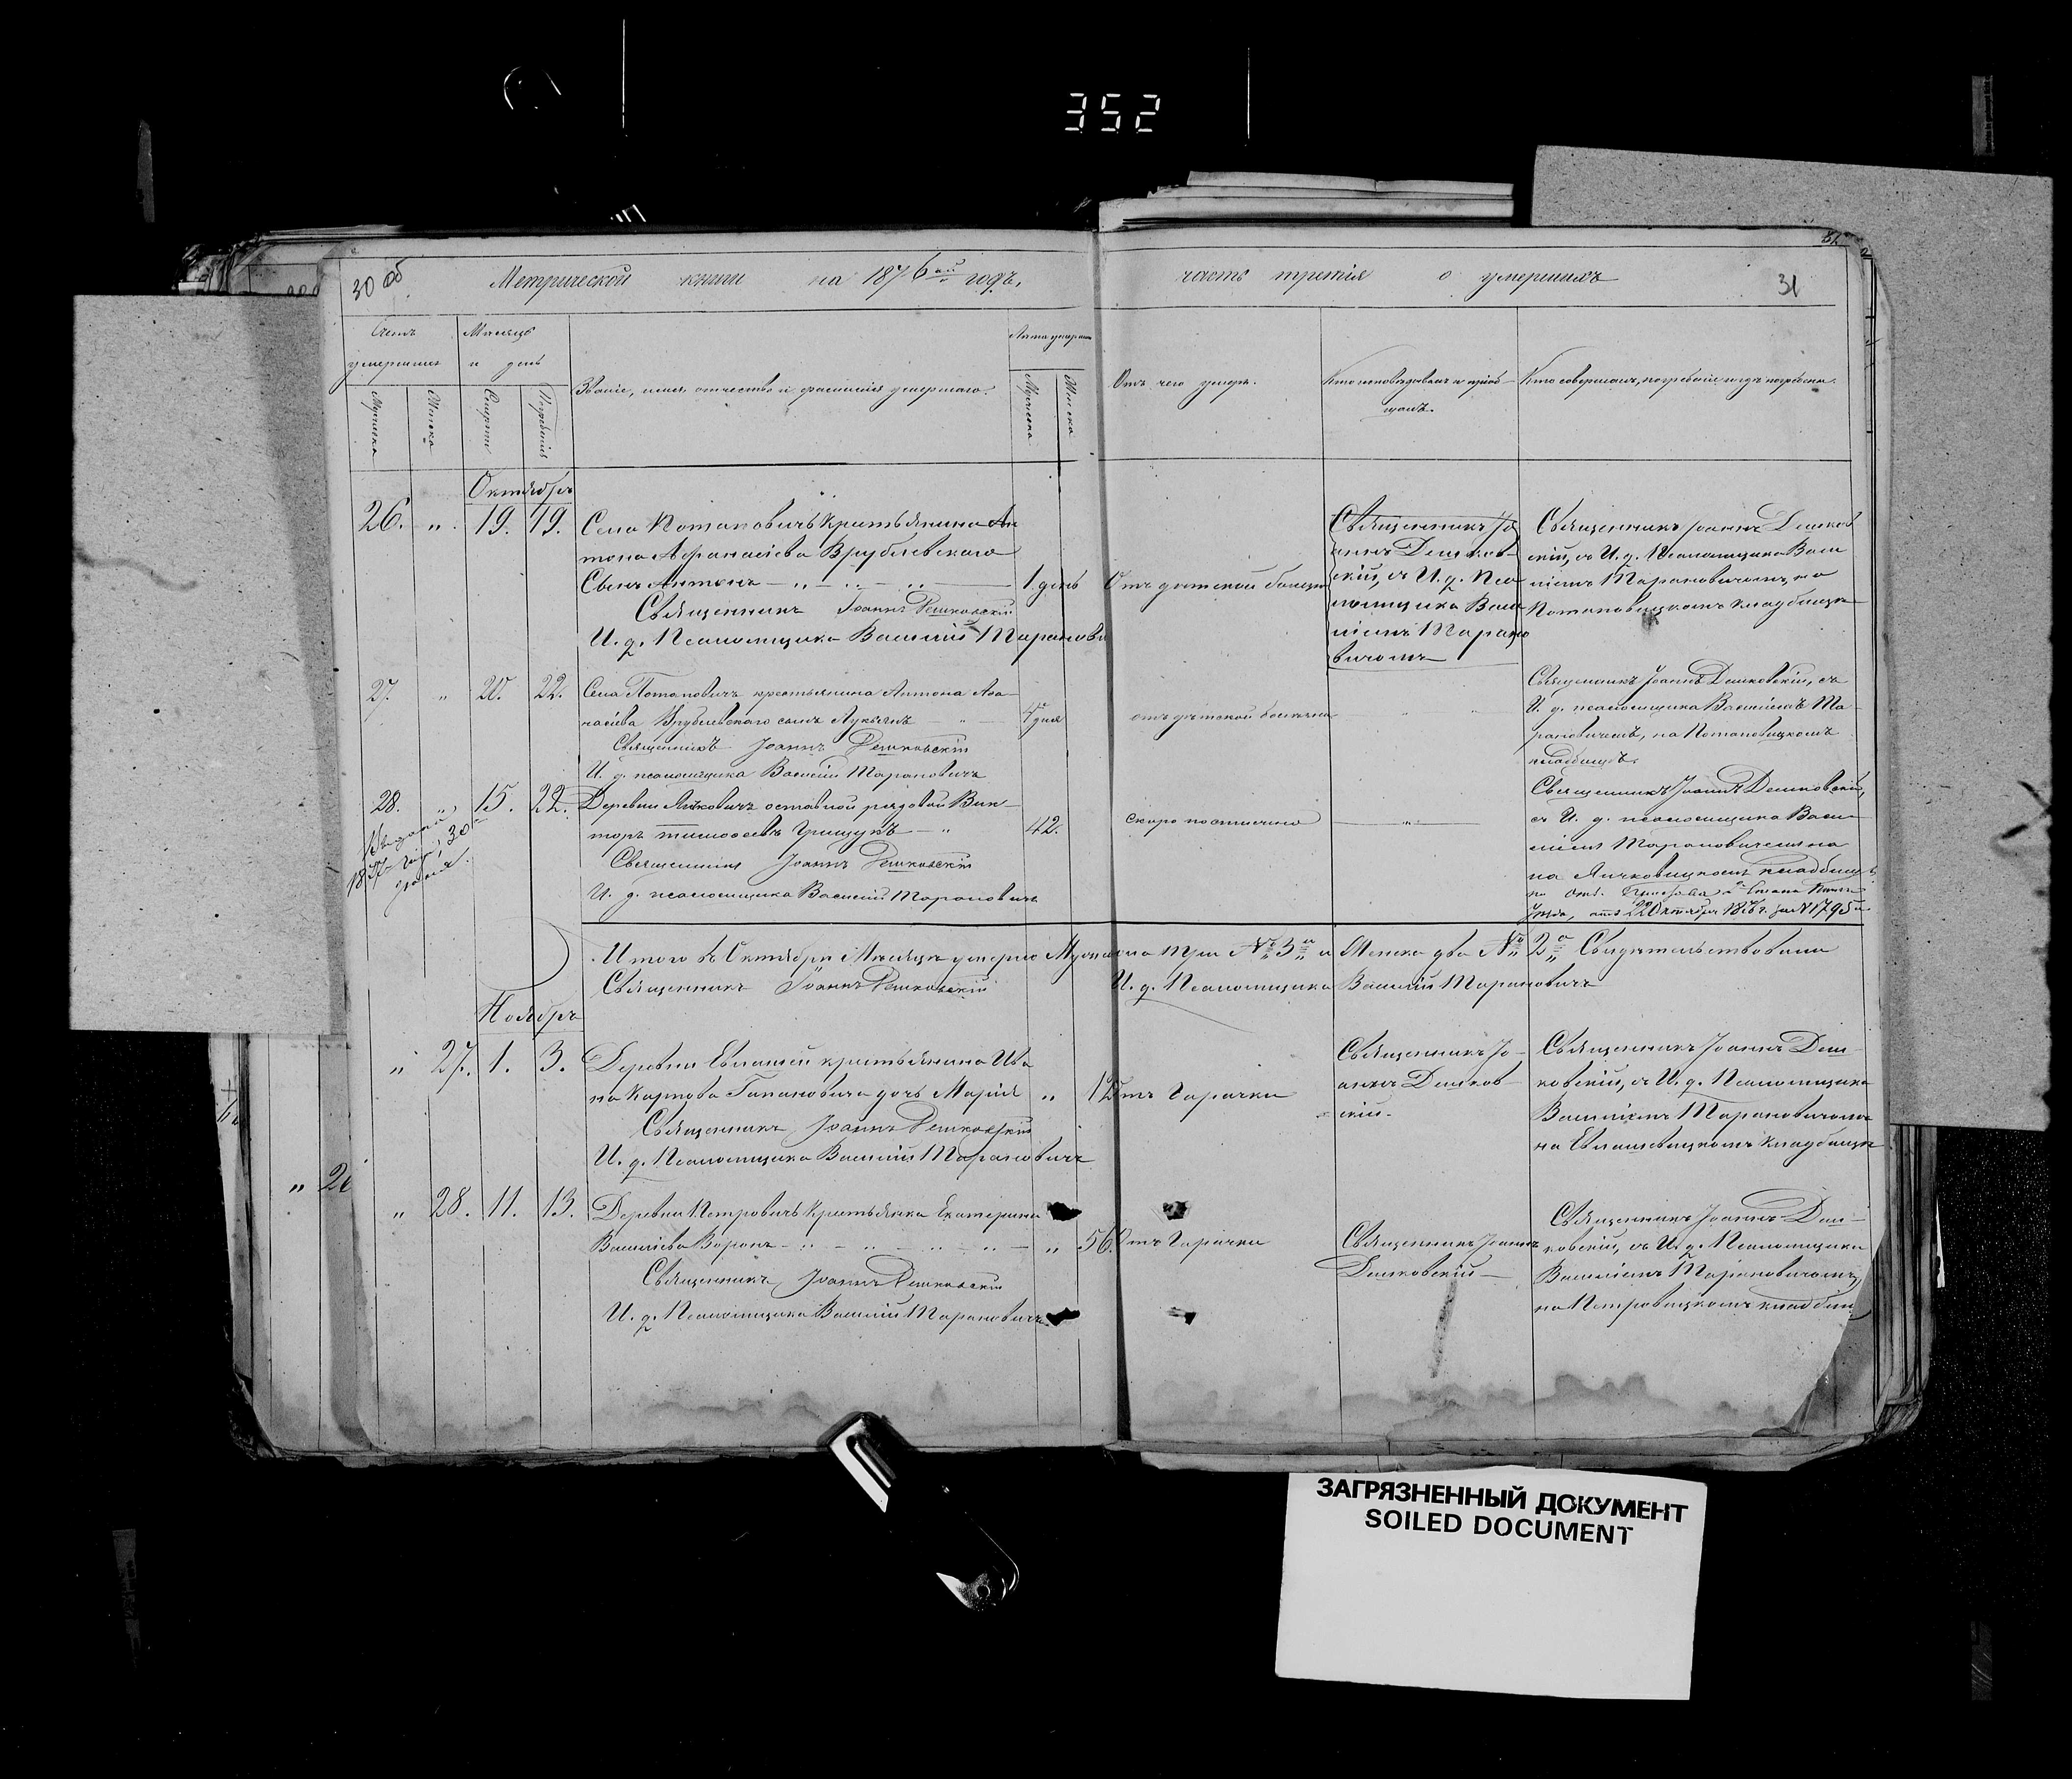 352
30 об
Метрической книги на 1876ый годъ,
часть третія о умершихъ
31
Счетъ умершихъ
Мѣсяцъ и день
Званіе, имя, отчество и фамилія умершаго.
Лѣта умершаго
Отъ чего умеръ.
Кто исповѣдывалъ и пріобщалъ.
Кто совершалъ погребеніе и гдѣ погребены.
Мужеска
Женска
Смерти
Погребенія
Мужеска
Женска
Октябрь
26. " 19. 19.
Села Потаповичъ крестьянина Ан
тона Афанасіева Врублевскаго
Сынъ Антонъ
1. день
Отъ дѣтской болезни
Священникъ Іоаннъ Демковскій
И. д. Псаломщика Василій Тарановичъ
Священникъ Іо
аннъ Демков
скій, съ И. д. Пса
ломщика Васи
ліемъ Тарано
вичомъ
Священникъ Іоаннъ Демков
скій, съ И. д. Псаломщика Васи
ліемъ Тарановичомъ, на
Потаповицкомъ кладбищѣ
27. " 20. 22.
Села Потаповичъ крестьянина Антона Афа
насіева Врублевскаго сынъ Лукьянъ
дня
отъ дѣтской болезни
Священникъ Іоаннъ Демковскій
И. д. псаломщика Василій Тарановичъ
Священникъ Іоаннъ Демковскій, съ
И. д. псаломщика Василіемъ Та-
рановичемъ, на Потаповицкомъ
кладбищѣ.
28. " 15. 22.
Деревни отставной рядовой Вик-
торъ Тимофеевъ Грищукъ
42.
скоропостижно
Священникъ Іоаннъ Демковскій
И. д. псаломщика Василій Тарановичъ
30
Священникъ Іоаннъ Демковскій,
съ И. д. псаломщика Васи-
ліемъ Тарановичемъ на
на кладбищѣ
по
22 Октября 1876 г. за № 1795
Итого въ Октябрѣ Мѣсяцѣ умерло Мужеска три № 3 и Женска два № 2 Свидѣтельствовали
Священникъ Іоаннъ Демковскій
И. д. Псаломщика Василій Тарановичъ
Ноябрь
" 27. 1. 3.
Деревни крестьянина Ива
на Карпова Гапановича дочь Марія "
Отъ Горячки
Священникъ Іоаннъ Демковскій
И. д. Псаломщика Василій Тарановичъ
Священникъ Іо-
аннъ Демков-
скій.
Священникъ Іоаннъ Дем-
ковскій, съ И. д. Псаломщика
Василіемъ Тарановичомъ
на кладбищѣ
" 28. 11. 13.
Деревни Петровичъ крестьянка Екатерина
Василіева Воронъ " 56.
Отъ Горячки
Священникъ Іоаннъ Демковскій
И. д. Псаломщика Василій Тарановичъ
Священникъ Іоаннъ
Демковскій
Священникъ Іоаннъ Дем-
ковскій, съ И. д. Псаломщика
Василіемъ Тарановичомъ,
на Петровицкомъ кладбищѣ
ЗАГРЯЗНЕННЫЙ ДОКУМЕНТ
SOILED DOCUMENT